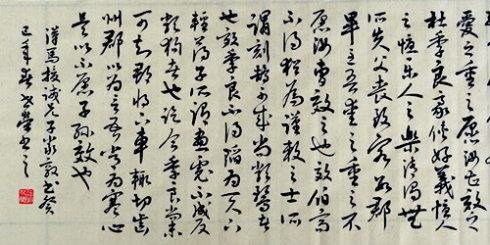 愛之重之愿汝曹效之
杜季良豪俠好義憂人
之憂樂人之樂清濁無
所失父喪致客數郡
畢至吾愛之重之不
愿汝曹效之也效伯高
不得猶為謹敕之士所
謂刻鵠不成尚類鶩者
也效季良不得陷為天下
輕薄子所謂畫虎不成反
類狗者也訖今季良尚未
可知郡將下車輒切齒
州郡以為言吾常為寒心
是以不愿子孫效也
漢馬援誡兄子嚴敦書癸
巳年書之